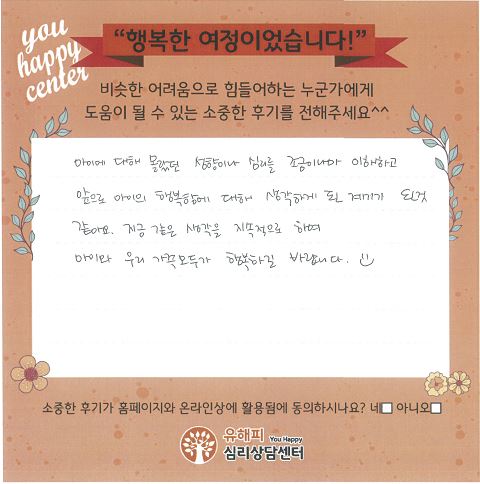 you
happy
center
“행복한 여정이었습니다!”
비슷한 어려움으로 힘들어하는 누군가에게
도움이 될 수 있는 소중한 후기를 전해주세요^^
아이에 대해 몰랐던 성향이나 심리를 조금이나마 이해하고
앞으로 아이의 행복함에 대해 생각하게 된 계기가 된것
같아요. 지금 같은 생각을 지속적으로 하며
아이와 우리 가족모두가 행복하길 바랍니다.
소중한 후기가 홈페이지와 온라인상에 활용됨에 동의하시나요? 네 아니오
유해피 You Happy
심리상담센터